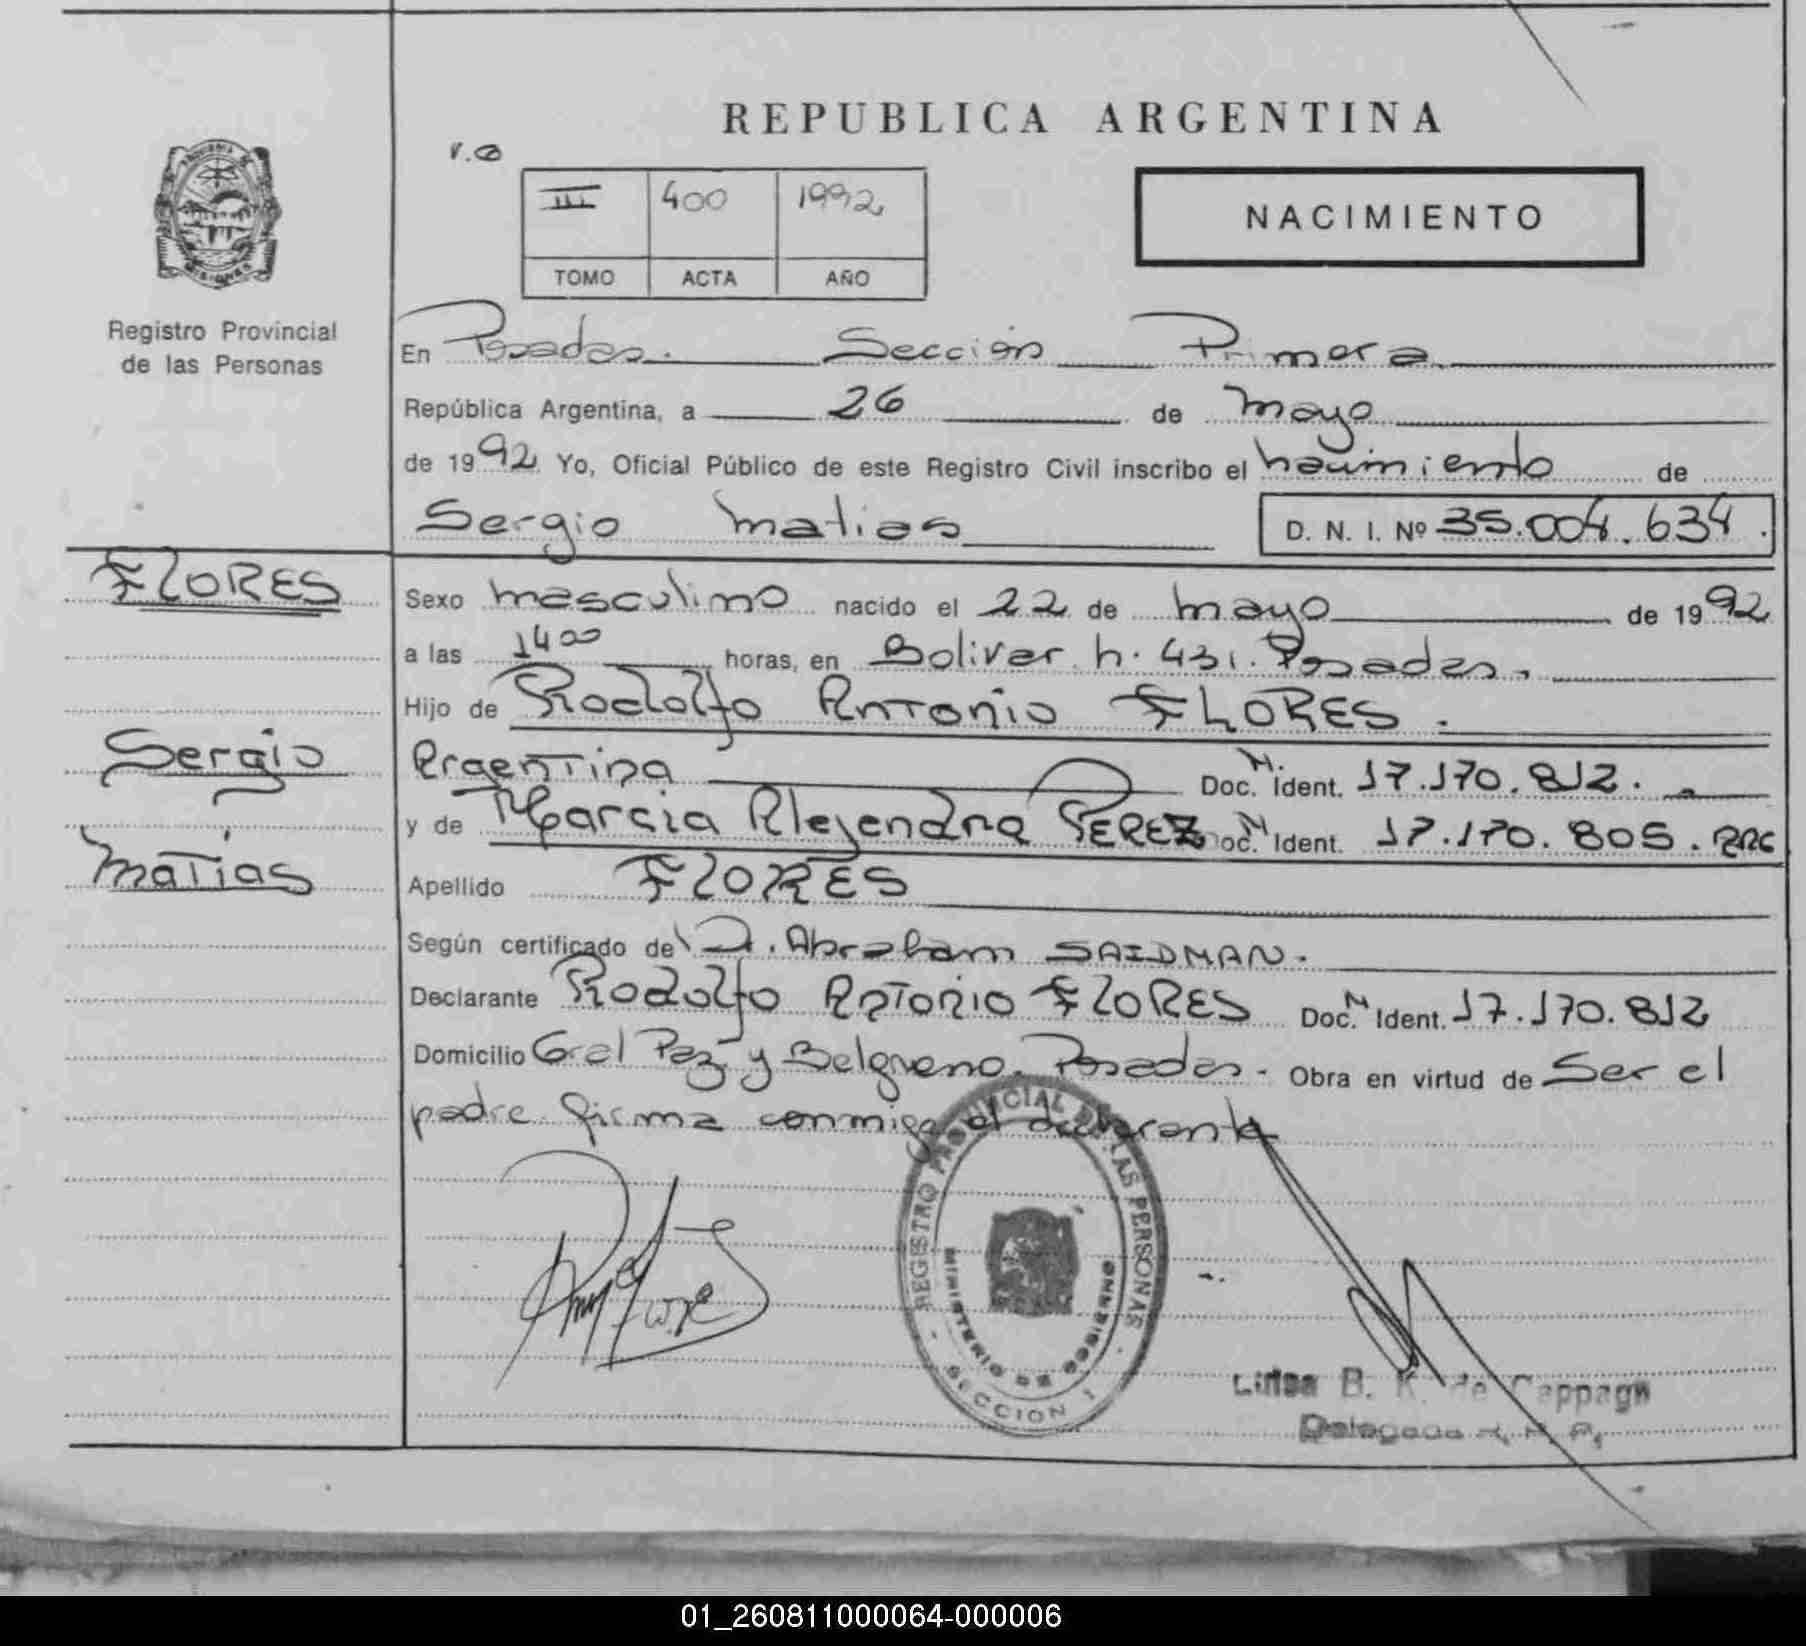 REPUBLICA ARGENTINA
III 400 1992
TOMO ACTA AÑO
NACIMIENTO
Registro Provincial
de las Personas
En Posadas. Sección Primera
República Argentina, a 26 de mayo
de 1992. Yo, Oficial Público de este Registro Civil inscribo el nacimiento de
Sergio Matias D. N. I. Nº 35.004.634.
FLORES
Sergio
Matias
Sexo masculino nacido el 22 de mayo de 1992
a las 1400 horas, en Bolivar n. 431. Posadas.
Hijo de Rodolfo Antonio FLORES.
Argentina Doc. N. Ident. 17.170.812.
y de Marcia Alejandra PEREZ Doc. N Ident. 17.170.805. ARG
Apellido FLORES
Según certificado de Dr. Abraham SAIDMAN.
Declarante Rodolfo Antonio FLORES Doc. N Ident. 17.170.812
Domicilio Gral Paz y Belgrano. Posadas. Obra en virtud de Ser el
padre firma conmigo el declarante
REGISTRO PROVINCIAL DE LAS PERSONAS
MINISTERIO DE GOBIERNO
SECCION 1
Luisa B. K. de Cappagn
Delegada R. P. P.
01_260811000064-000006